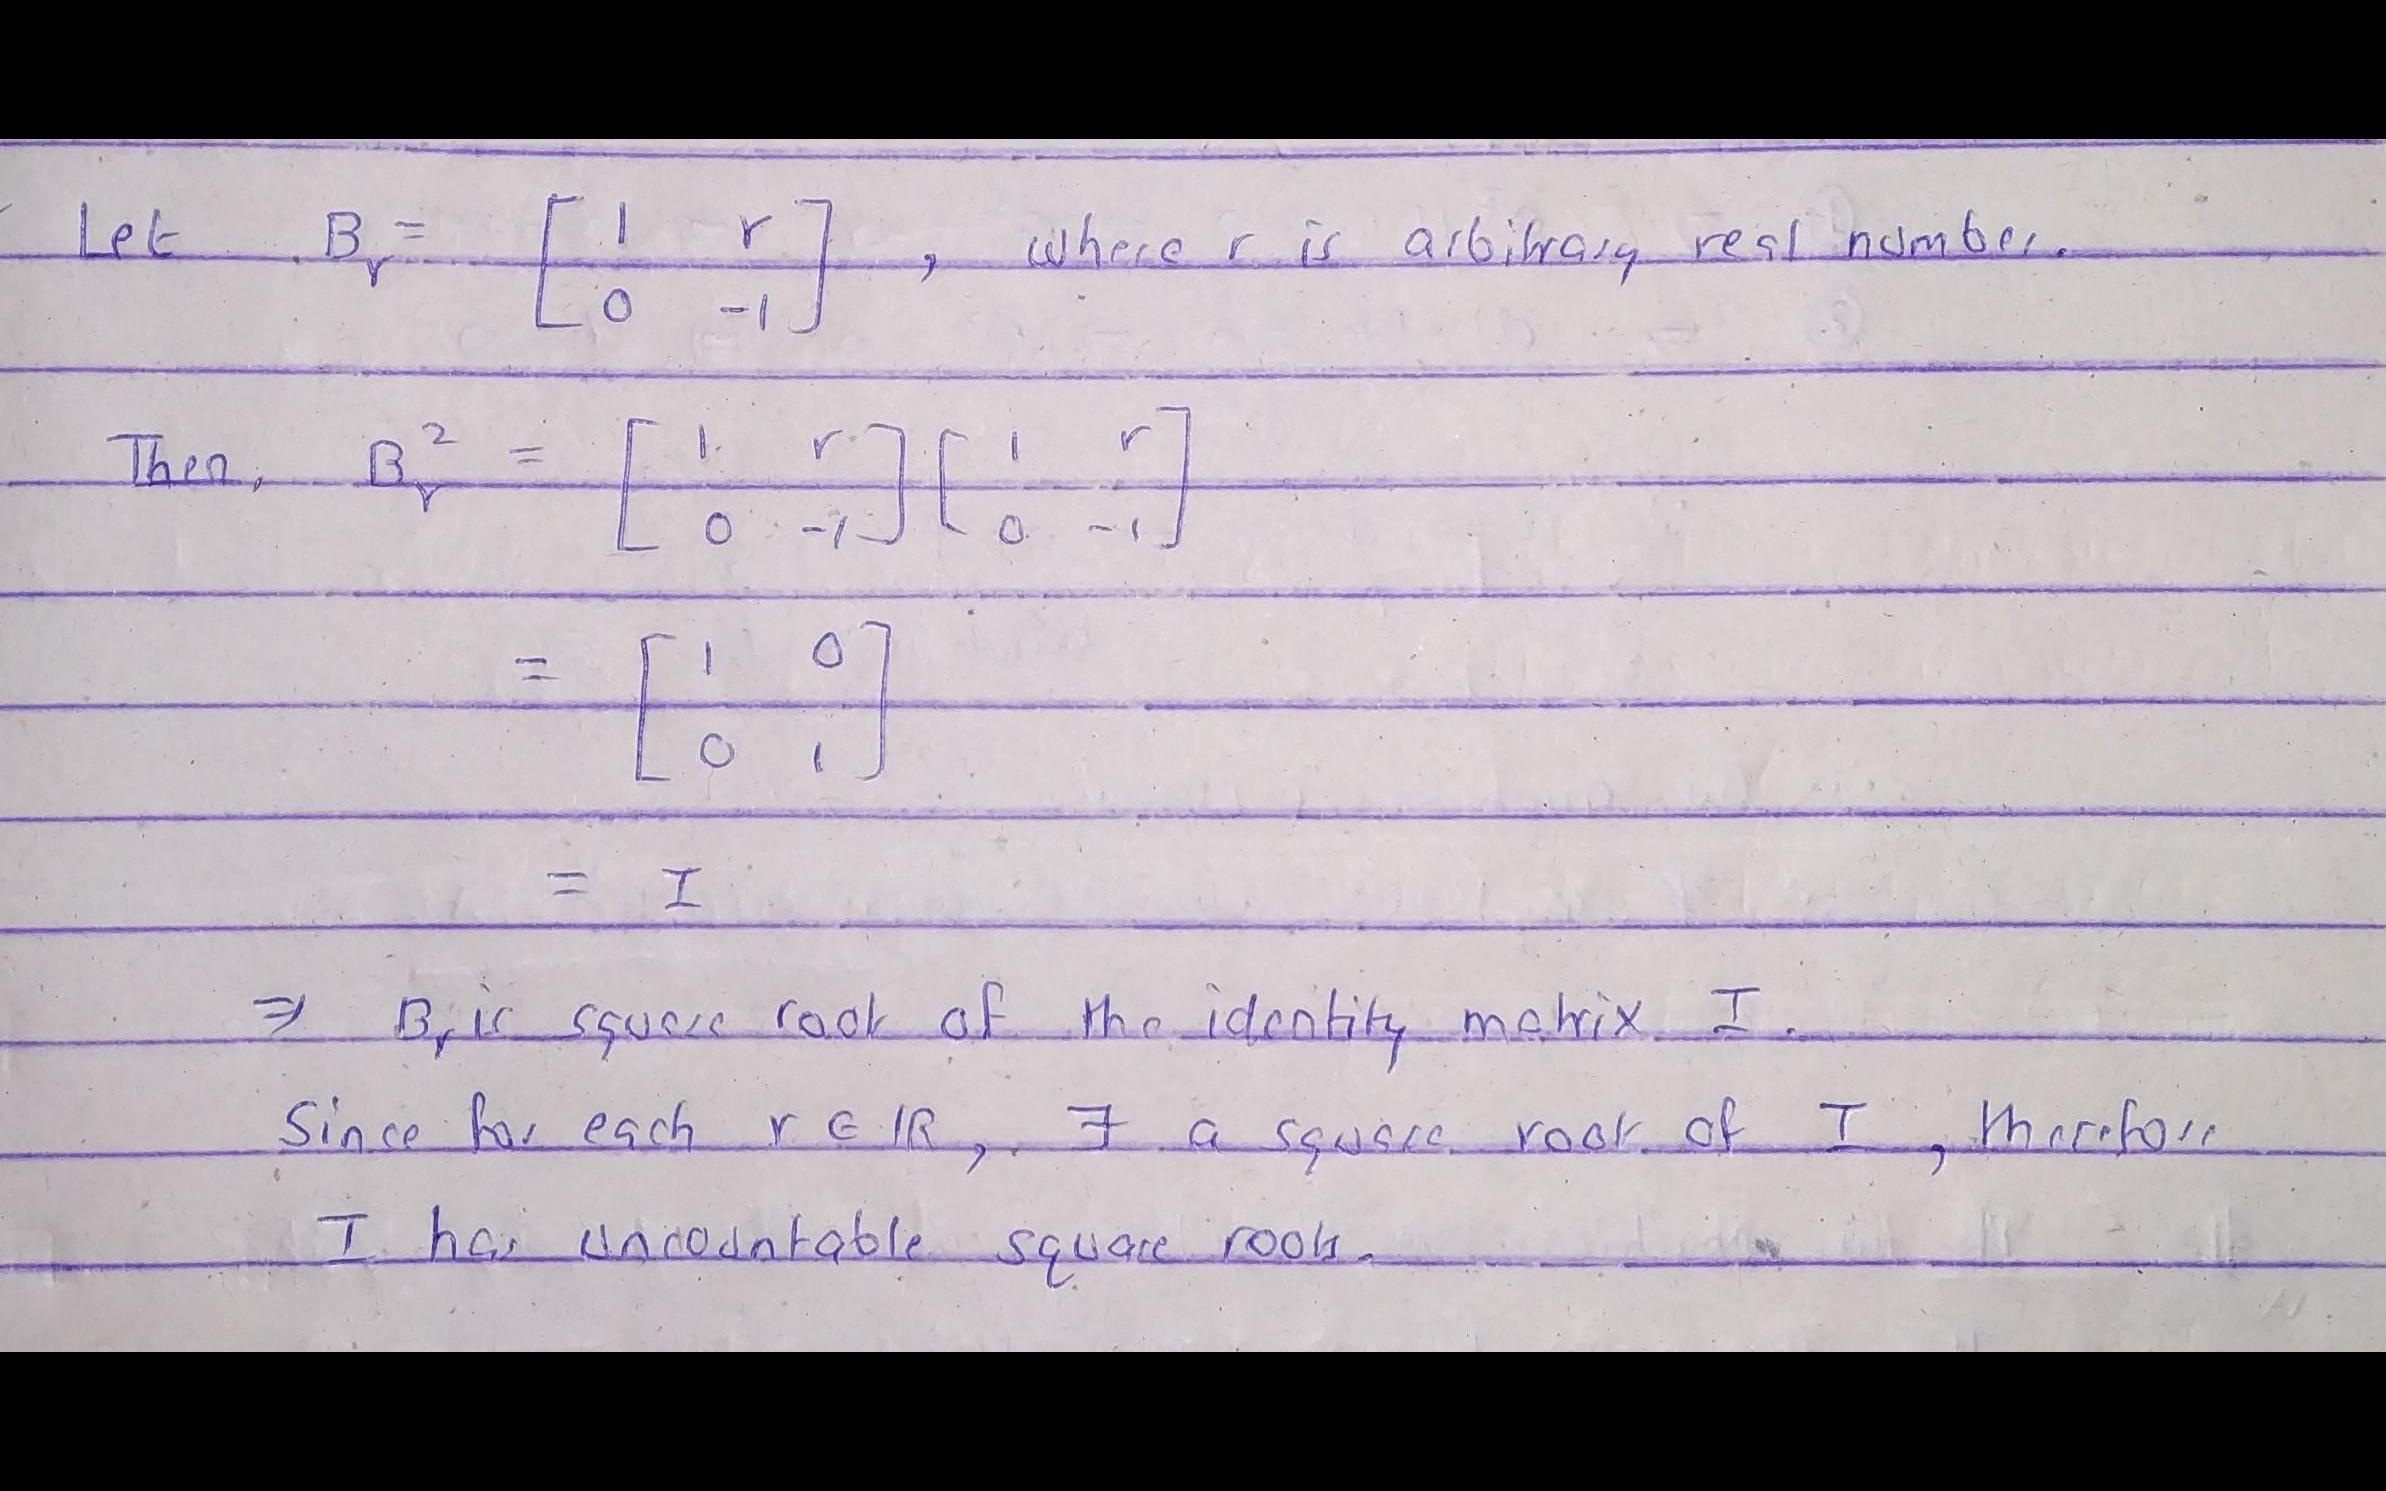 Let B_r = [ 1 r ; 0 -1 ] , where r is arbitrary real number.
Then, B_r^2 = [ 1 r ; 0 -1 ] [ 1 r ; 0 -1 ]
= [ 1 0 ; 0 1 ]
= I
⇒ B_r is square root of the identity matrix I.
Since for each r ∈ IR, ∃ a square root of I, therefore
I has uncountable square roots.